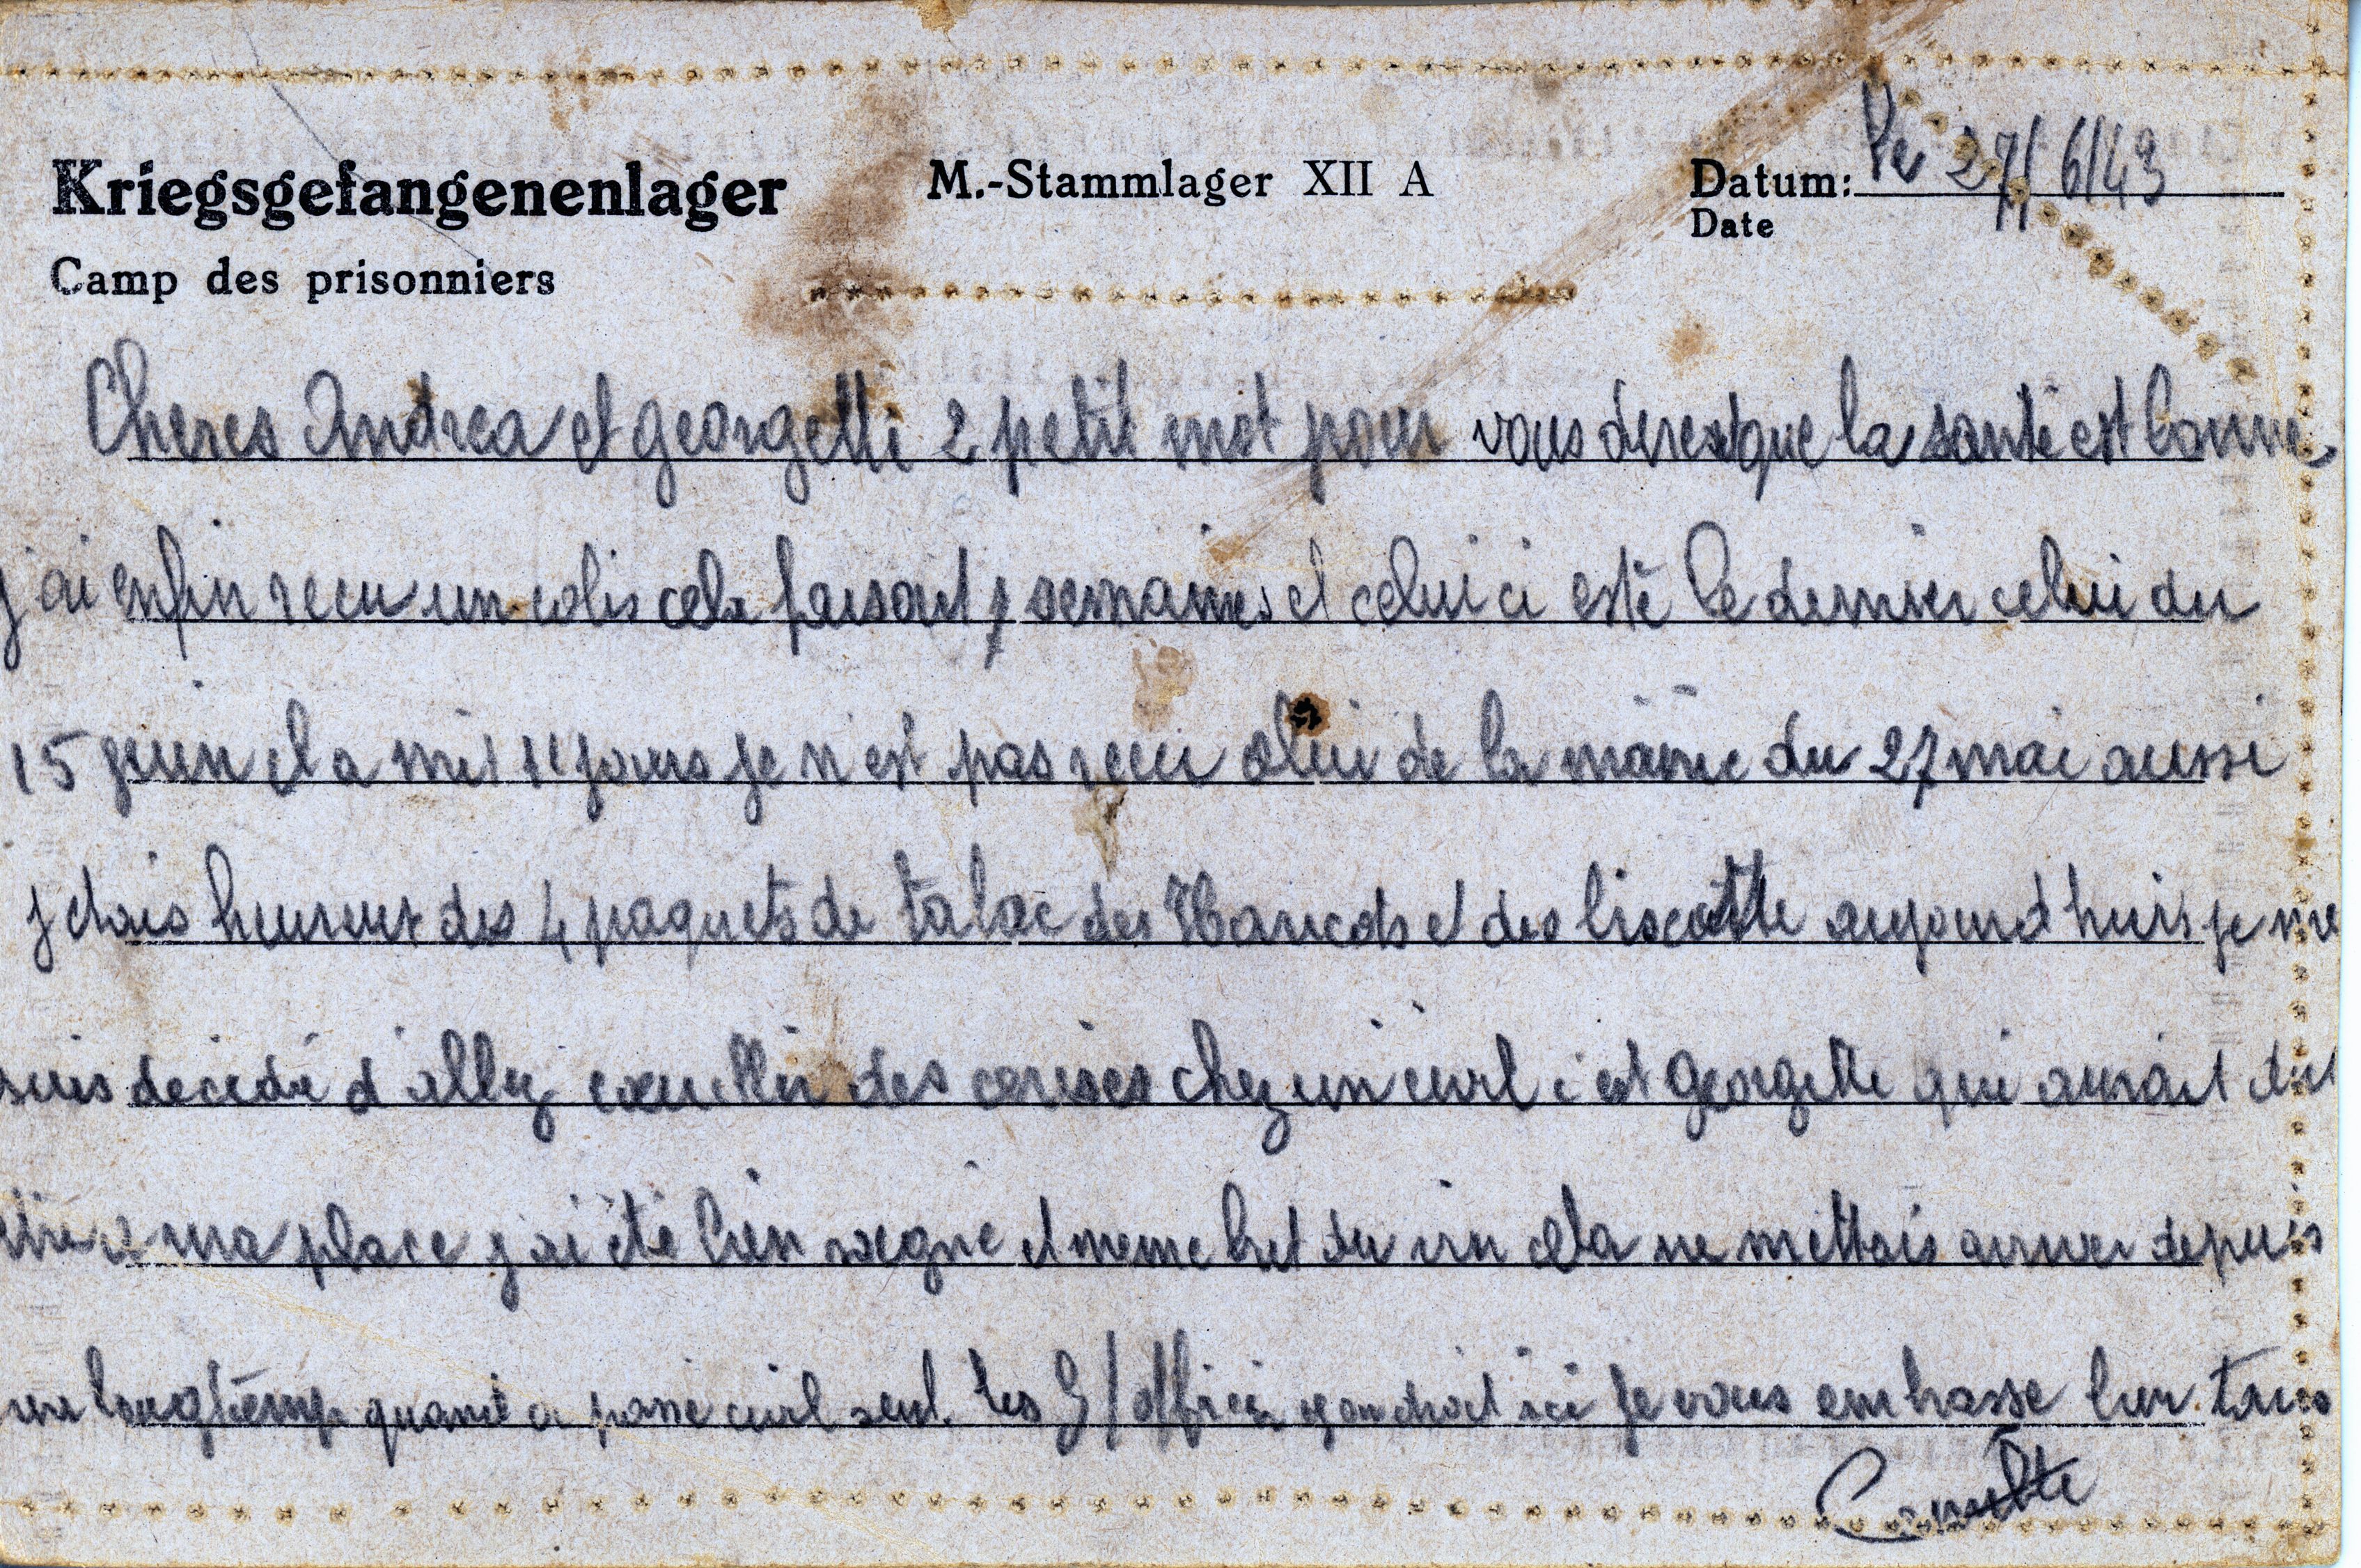 Kriegsgefangenenlager M.-Stammlager XII A Datum: le 27/6/43
Date
Camp des prisonniers
Cheres Andrea et georgette 2 petit mot pour vous dire que la santé est bonne
j ai enfin recu un colis cela faisait 7 semaines et celui ci esté le dernier celui du
15 juin il a mis 11 jours je n est pas recu celui de la mairie du 27 mai aussi
j etais heureux des 4 paquets de tabac des Haricots et des biscotte aujourd huis je me
suis decidé d allez ceuillir des cerises chez un civil c est georgette qui aurait du
etre a ma place j ai été bien soegné et meme but du vin cela ne mettais arriver depuis
longtemp quand a passé civil seul les S/officier y on droit ici je vous embrasse bien tous